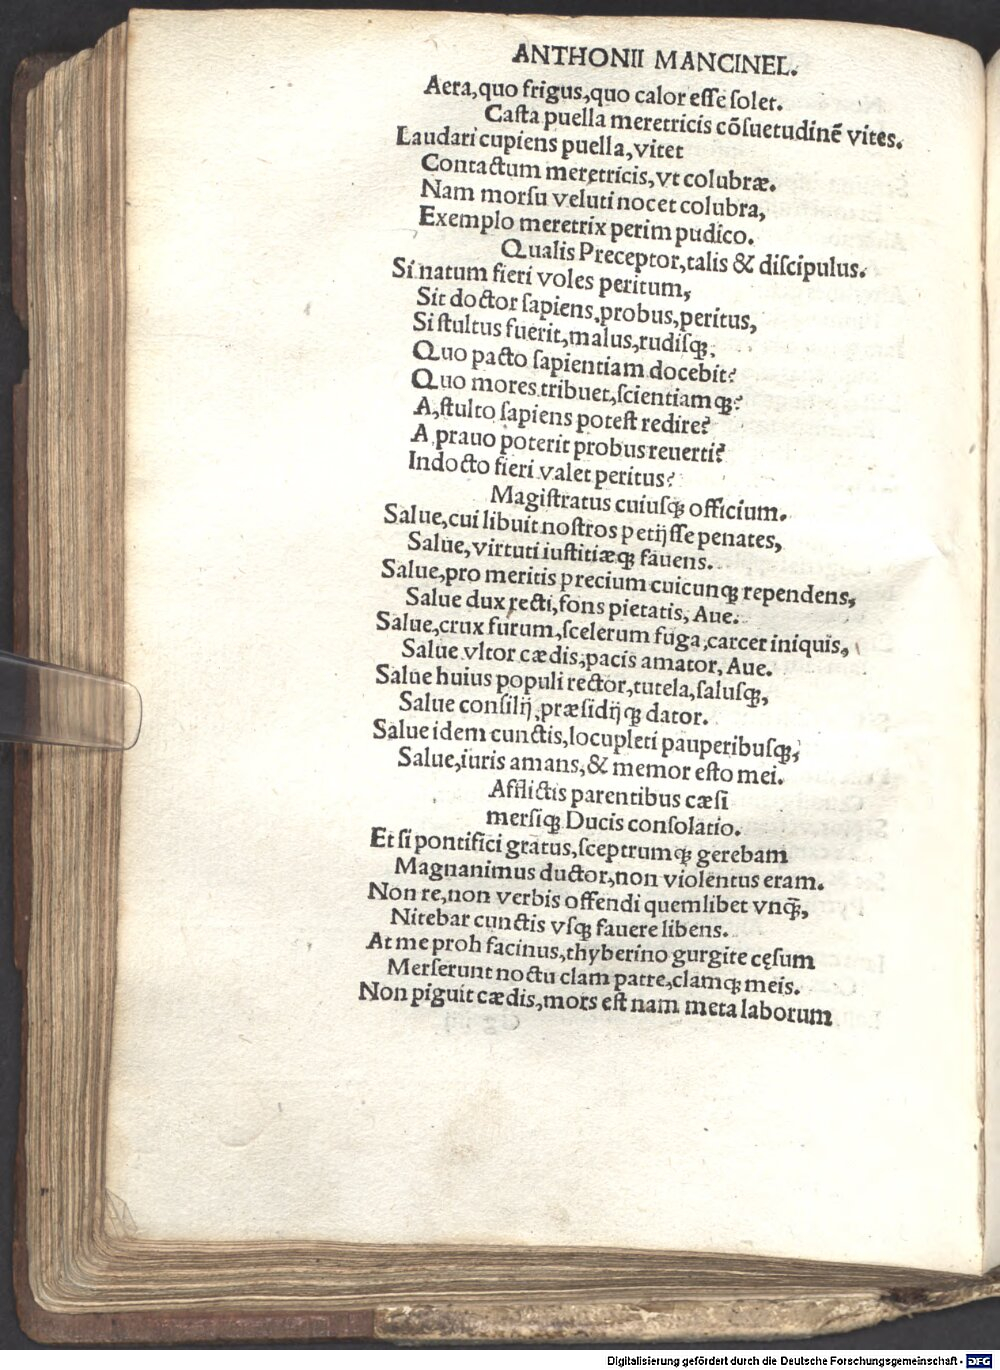 ANTHONII MANCINEL.
Aera,quo frigus,quo calor eſſe ſolet.
Caſta puella meretricis cõſuetudinẽ vites.
Laudari cupiens puella,vitet
Contactum meretricis,vt colubræ.
Nam morſu veluti nocet colubra,
Exemplo meretrix perim pudico.
Qualis Preceptor,talis & diſcipulus.
Si natum fieri voles peritum,
Sit doctor ſapiens,probus,peritus,
Si ſtultus fuerit,malus,rudiſqꝫ,
Quo pacto ſapientiam docebit?
Quo mores tribuet,ſcientiamqꝫ?
A,ſtulto ſapiens poteſt redire?
A prauo poterit probus reuerti?
Indocto fieri valet peritus?
Magiſtratus cuiuſqꝫ officium.
Salue,cui libuit noſtros petijſſe penates,
Salue,virtuti iuſtitiæqꝫ fauens.
Salue,pro meritis precium cuicunqꝫ rependens,
Salue dux recti,fons pietatis, Aue.
Salue,crux furum,ſcelerum fuga,carcer iniquis,
Salue vltor cædis,pacis amator, Aue.
Salue huius populi rector,tutela,ſaluſqꝫ,
Salue conſilij,præſidijqꝫ dator.
Salue idem cunctis,locupleti pauperibuſqꝫ,
Salue,iuris amans,& memor eſto mei.
Afflictis parentibus cæſi
merſiqꝫ Ducis conſolatio.
Et ſi pontifici gratus,ſceptrumqꝫ gerebam
Magnanimus ductor,non violentus eram.
Non re,non verbis offendi quemlibet vnqꝫ̃,
Nitebar cunctis vſqꝫ fauere libens.
At me proh facinus,thyberino gurgite cęſum
Merſerunt noctu clam patre,clamqꝫ meis.
Non piguit cædis,mors eſt nam meta laborum
Digitalisierung gefördert durch die Deutsche Forschungsgemeinschaft - DFG